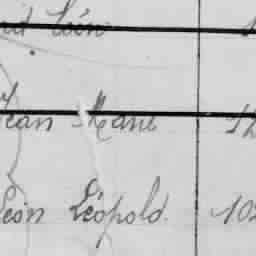 Léon
Jean Marie 12
Léon Léopold. 10